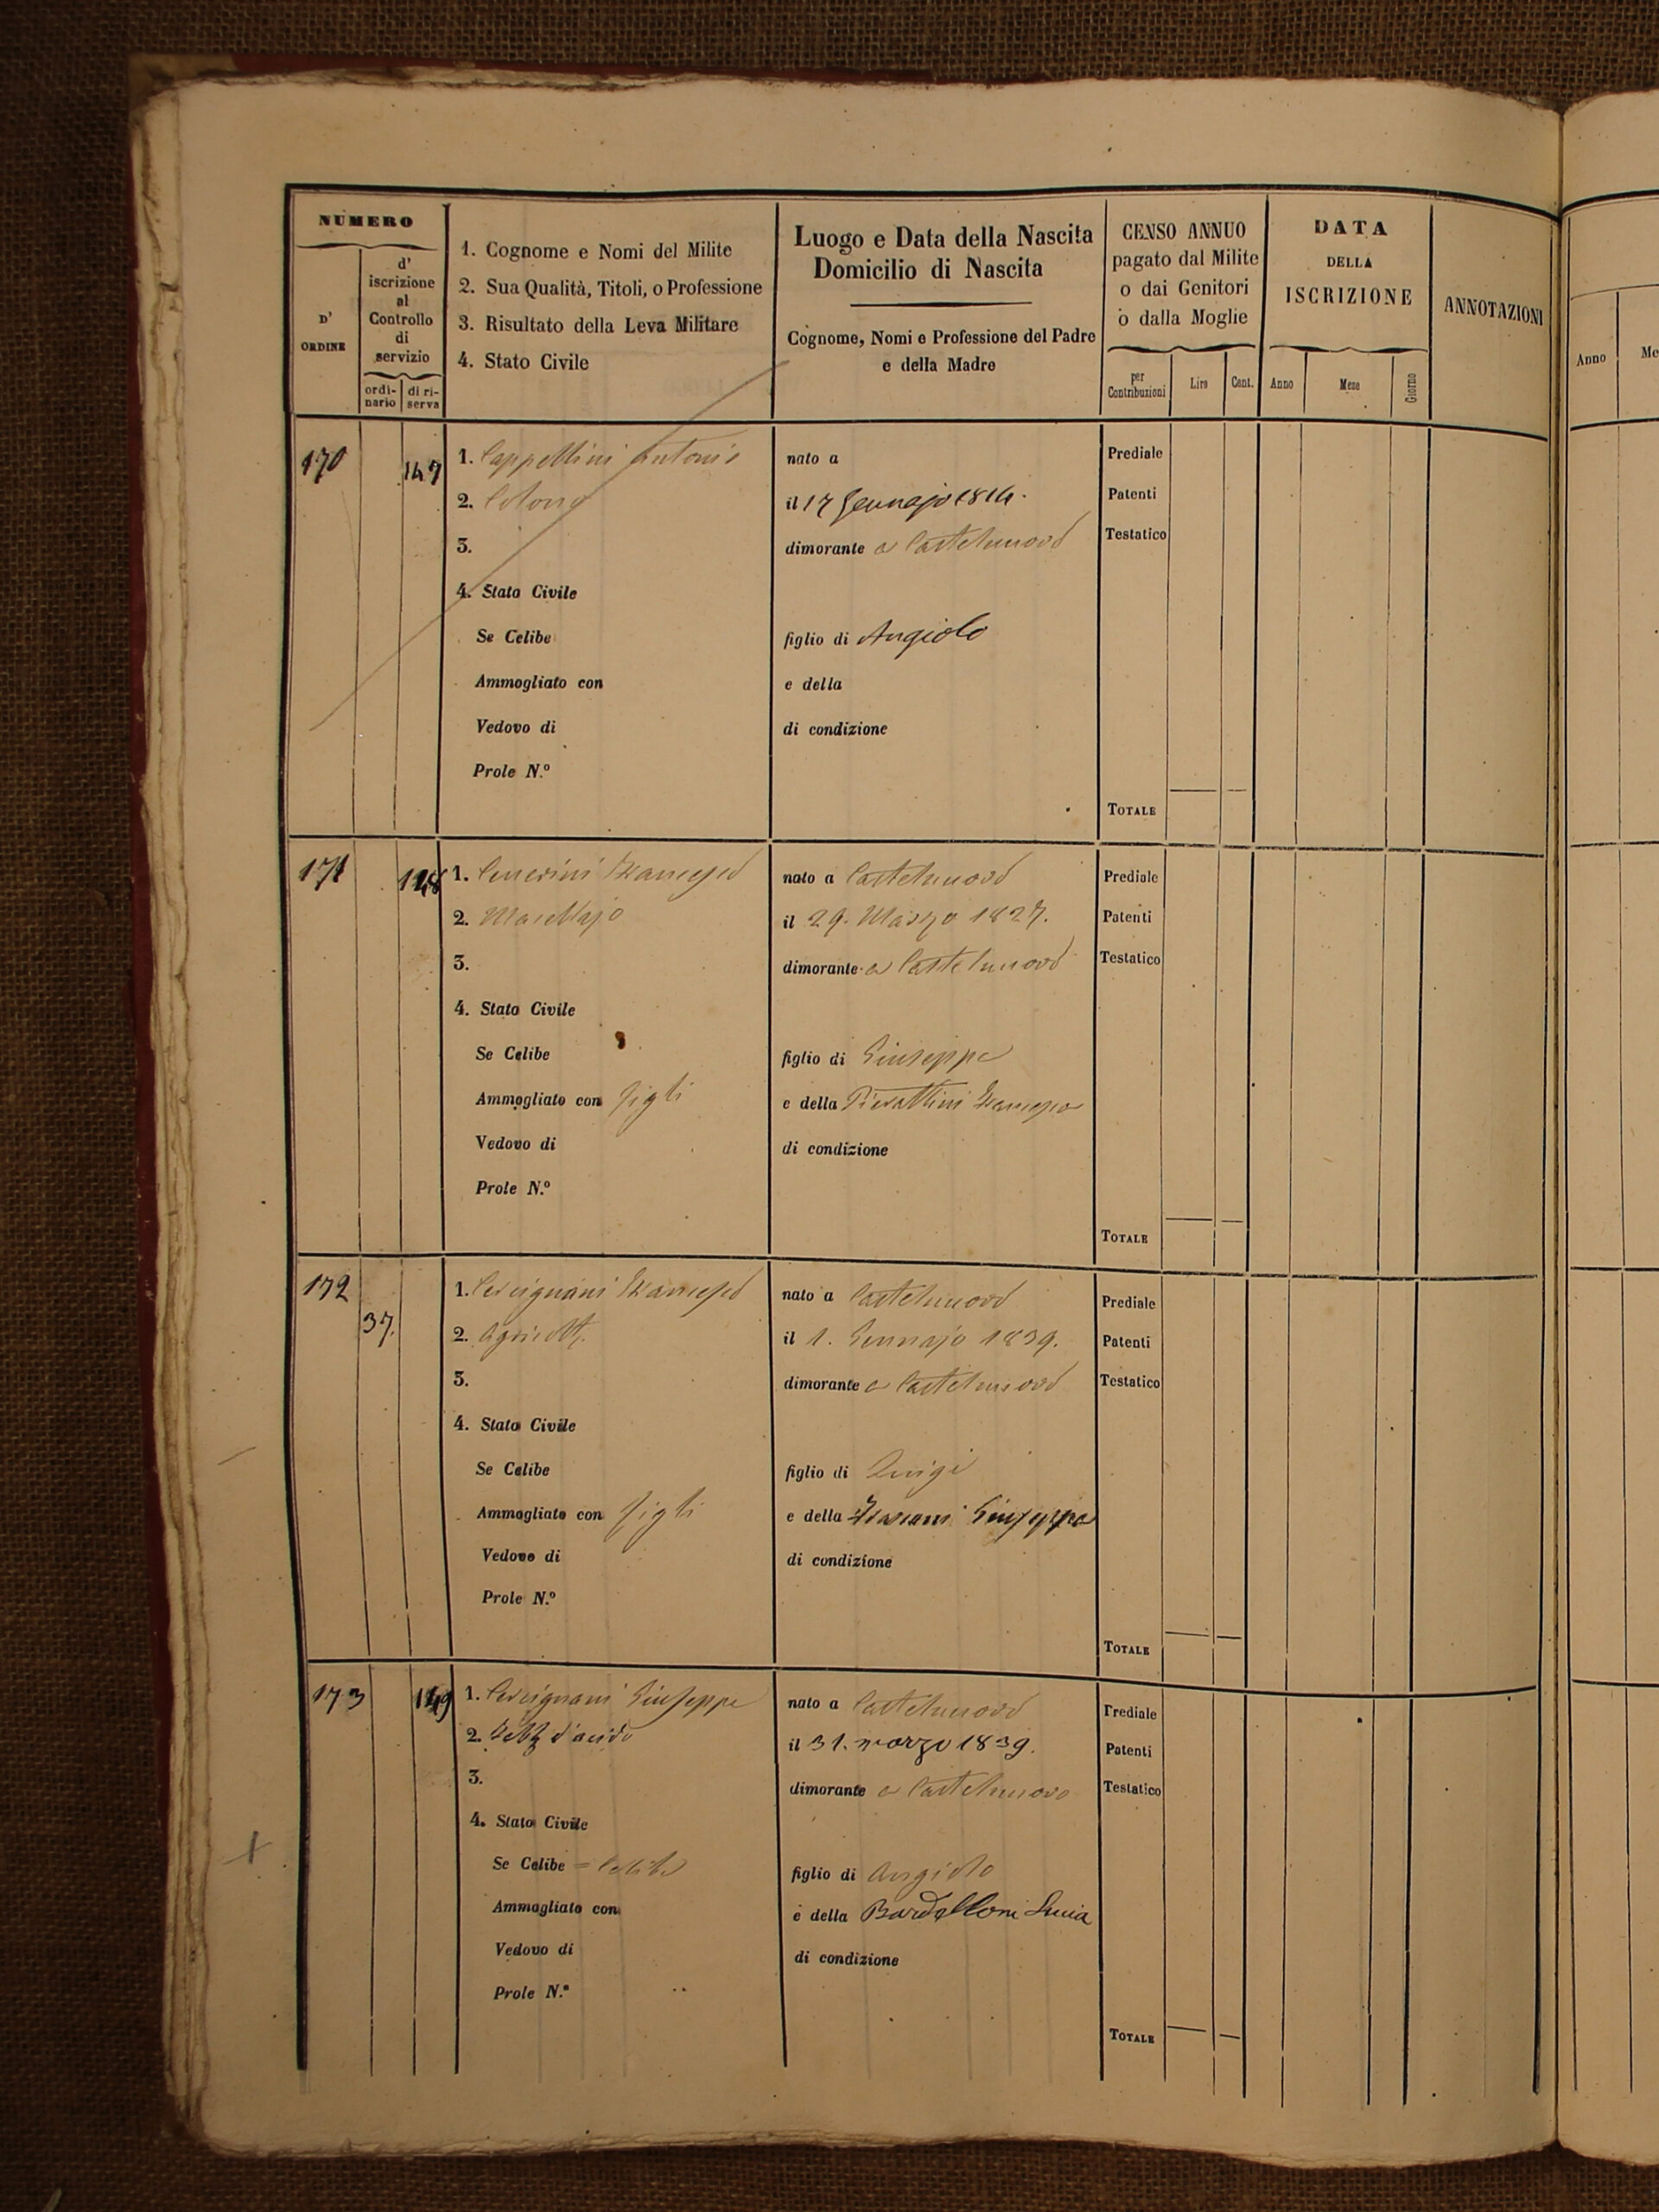 NUMERO
D'
ORDINE
d'
iscrizione
al
Controllo
di
servizio
ordi-
nario
di ri-
serva
1. Cognome e Nomi del Milite
2. Sua Qualità, Titoli, o Professione
3. Risultato della Leva Militare
4. Stato Civile
Luogo e Data della Nascita
Domicilio di Nascita
Cognome, Nomi e Professione del Padre
e della Madre
CENSO ANNUO
pagato dal Milite
o dai Genitori
o dalla Moglie
per
Contribuzioni
Lire
Cent.
DATA
DELLA
ISCRIZIONE
Anno
Mese
Giorno
ANNOTAZIONI
Anno
Me
170
147
1. Cappellini Antonio
2. Colono
3.
4. Stato Civile
Se Celibe
Ammogliato con
Vedovo di
Prole N.º
nato a
il 17 Gennajo 1814.
dimorante a Castelnuovo
figlio di Angiolo
e della
di condizione
Prediale
Patenti
Testatico
TOTALE
171
148
1. Cenerini Francesco
2. Macellajo
3.
4. Stato Civile
Se Celibe
Ammogliato con figli
Vedovo di
Prole N.º
nato a Castelnuovo
il 29. Marzo 1827.
dimorante a Castelnuovo
figlio di Giuseppe
e della Pierattini Francesca
di condizione
Prediale
Patenti
Testatico
TOTALE
172
37.
1. Cercignani Francesco
2.
3.
4. Stato Civile
Se Celibe
Ammogliato con figli
Vedovo di
Prole N.º
nato a Castelnuovo
il 1. Gennajo 1839.
dimorante a Castelnuovo
figlio di Luigi
e della Giuseppa
di condizione
Prediale
Patenti
Testatico
TOTALE
173
149
1. Cercignani Giuseppe
2. d'acido
3.
4. Stato Civile
Se Celibe = Celibe
Ammogliato con
Vedovo di
Prole N.º
nato a Castelnuovo
il 31. marzo 1839.
dimorante a Castelnuovo
figlio di Angiolo
e della Bardelloni Lucia
di condizione
Prediale
Patenti
Testatico
TOTALE